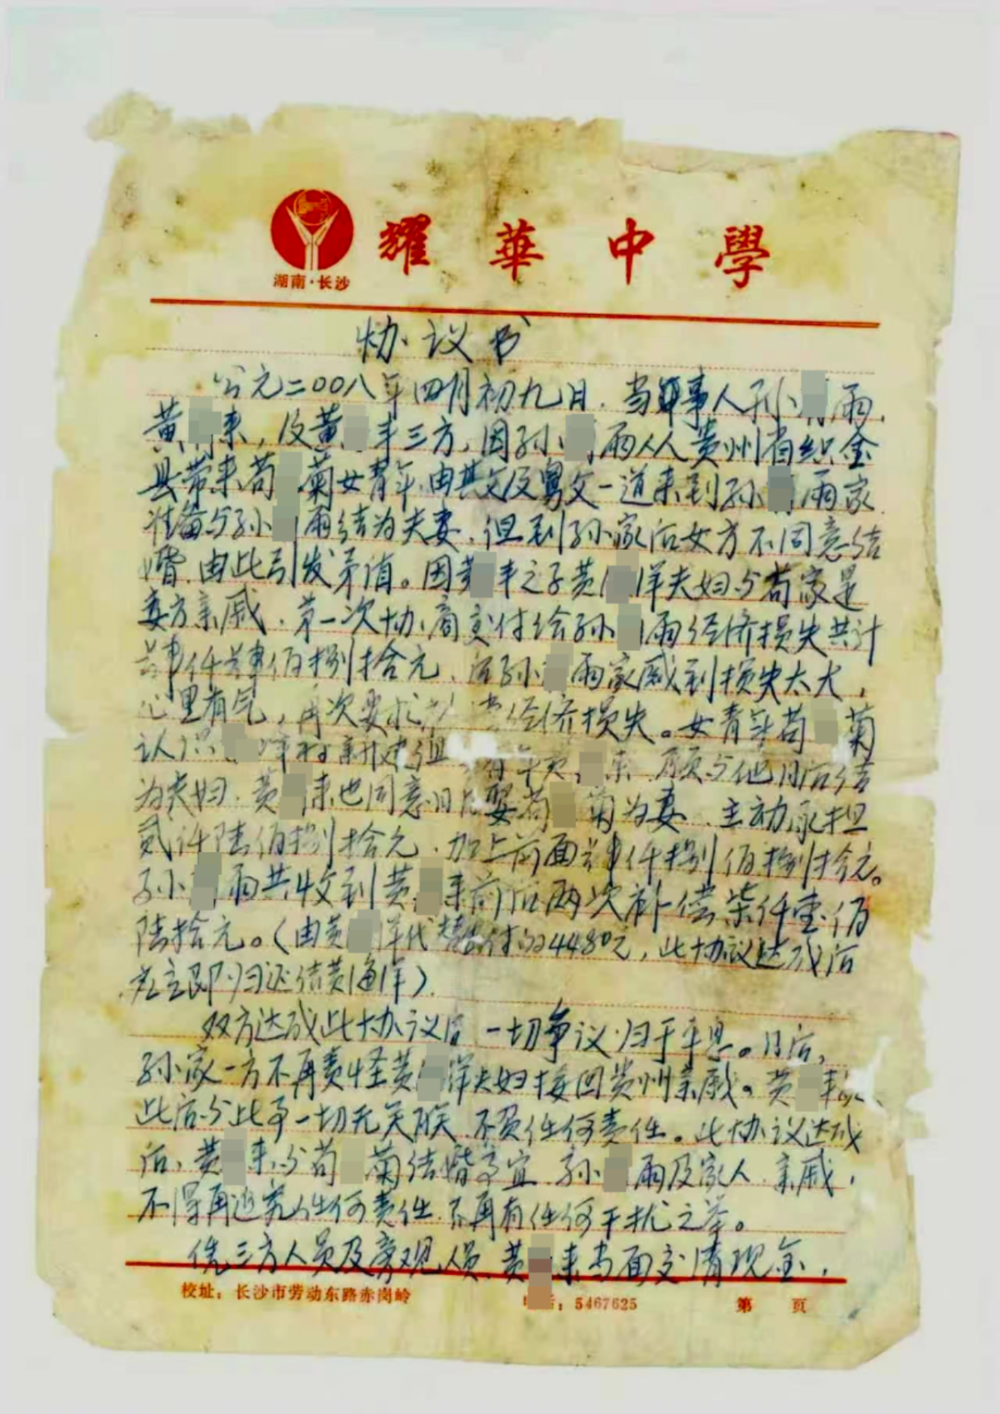 耀華中學
湖南·长沙
协议书
公元二00八年四月初九日、当事人孙 雨、
黄 来，及黄 丰三方，因孙 雨从贵州省织金
县带来苟 菊女青年，由其父及舅父一道来到孙 雨家
准备与孙 雨结为夫妻、但到孙家后女方不同意结
婚，由此引发矛盾。因黄 丰之子黄 洋夫妇与苟家是
妻方亲戚，第一次协商交付给孙 雨经济损失共计
肆仟肆佰捌拾元、后孙 雨家感到损失太大，
心里有气，再次要求 经济损失。女青年苟 菊
认 新建组 来，愿与他日后结
为夫妇、黄 来也同意日后娶苟 菊为妻、主动承担
贰仟陆佰捌拾元，加上前面肆仟 佰捌拾元。
孙 雨共收到黄 来前后两次补偿柒仟壹佰
陆拾元。（由黄 洋代替付的4480元，此协议达成后
立即归还给黄海洋）。
双方达成此协议后，一切争议归于平息。日后，
孙家一方不再责怪黄 洋夫妇接回贵州亲戚。黄 丰
此后与此事一切无关联、不负任何责任。此协议达成
后，黄 来与苟 菊结婚事宜，孙 雨及家人、亲戚，
不得再追究任何责任、不再有任何干扰之举。
凭三方人员及旁观人员、黄 来当面交清现金，
校址：长沙市劳动东路赤岗岭 话：5467625 第 页